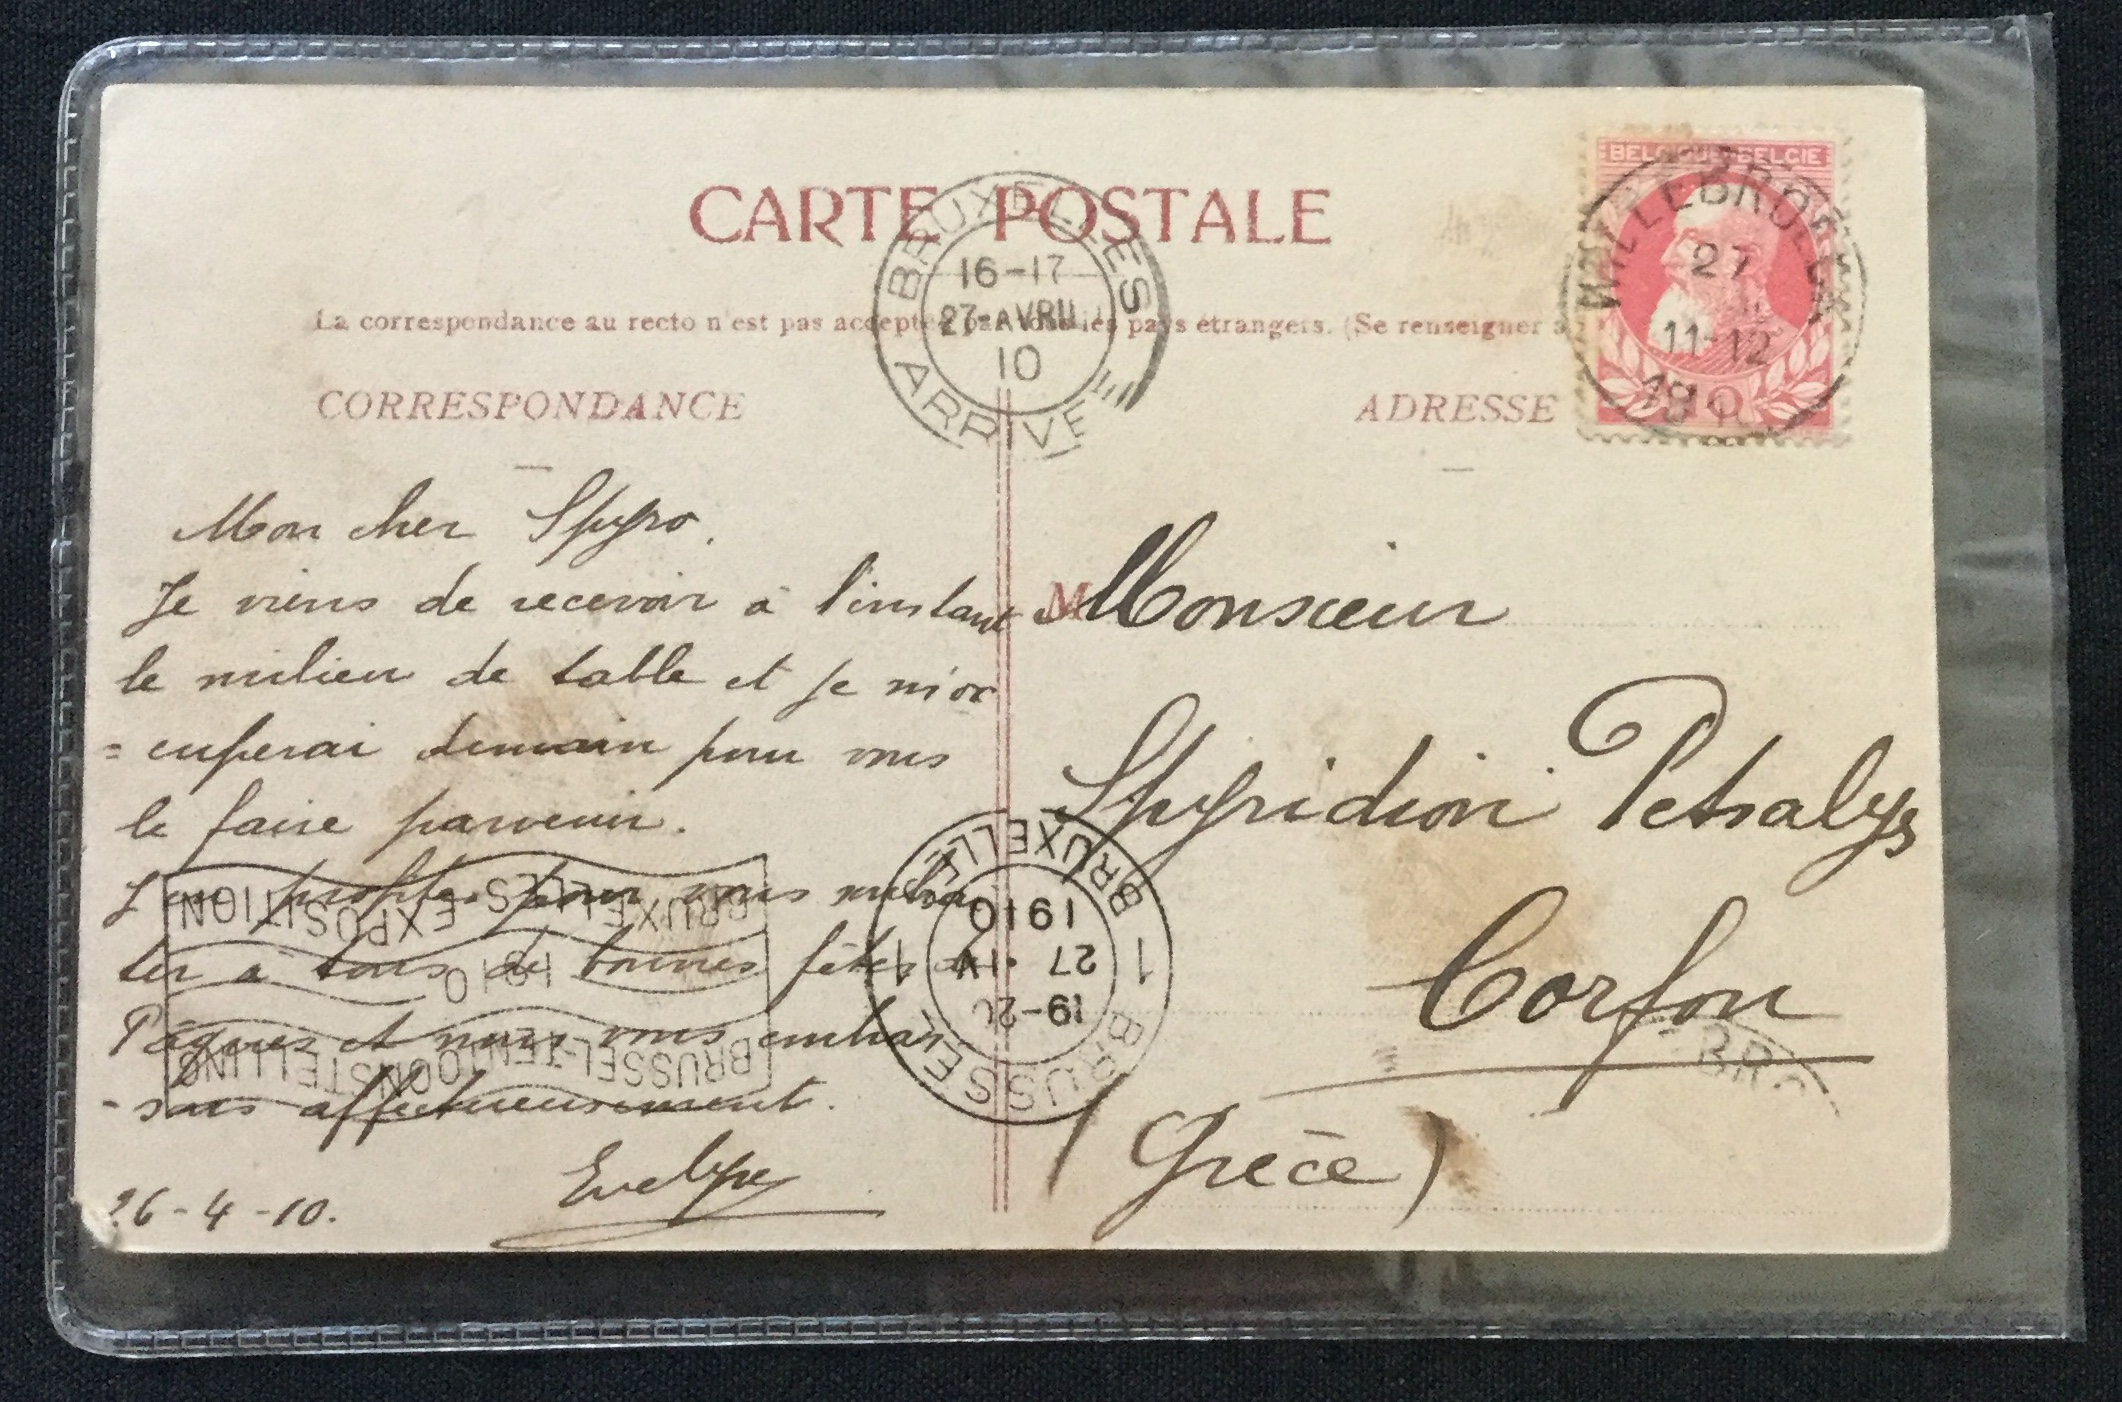 BELGIQUE BELGIE
WILLEBROECK
27
11-12
1910
CARTE POSTALE
BRUXELLES
16-17
27-AVRIL
10
ARRIVE
La correspondance au recto n'est pas acceptée par tous les pays étrangers. (Se renseigner à
CORRESPONDANCE
ADRESSE
Mon cher Spyro.
Je viens de recevoir à l'instant
le milieu de table et je m'oc
=cuperai demain pour vous
le faire parvenir.
J'en profite pour vous souhai
ter à tous de bonnes fêtes de
Pâques et nous vous embras
-sons affectueusement.
Evelype
26-4-10.
M Monsieur
Spyridion Petsalys
Corfou
(Grèce)
BRUXELLES-EXPOSITION
1910
BRUSSEL-TENTOONSTELLING
1 BRUXELLES 1
1910
27 IV
19-20
BRUSSEL
BR